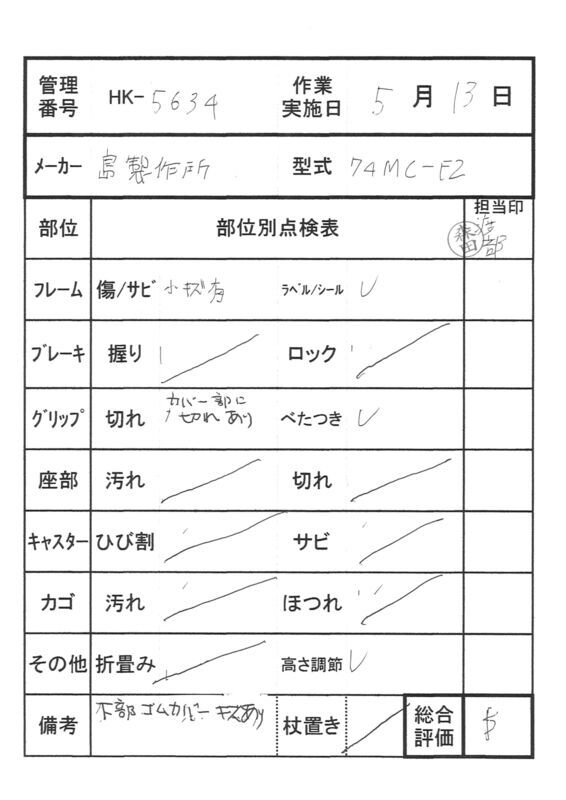 管理番号 HK-5634 作業実施日 5月13日
メーカー 島製作所 型式 74MC-F2
部位 部位別点検表 担当印 森田 渡部
フレーム 傷/サビ 小キズ有 ラベル/シール レ
ブレーキ 握り ロック
グリップ 切れ カバー部に切れあり べたつき レ
座部 汚れ 切れ
キャスター ひび割 サビ
カゴ 汚れ ほつれ
その他 折畳み 高さ調節 レ
備考 下部ゴムカバーキズあり 杖置き 総合評価